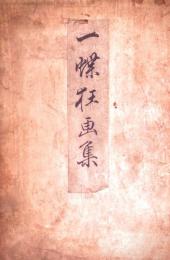 一蝶狂画集